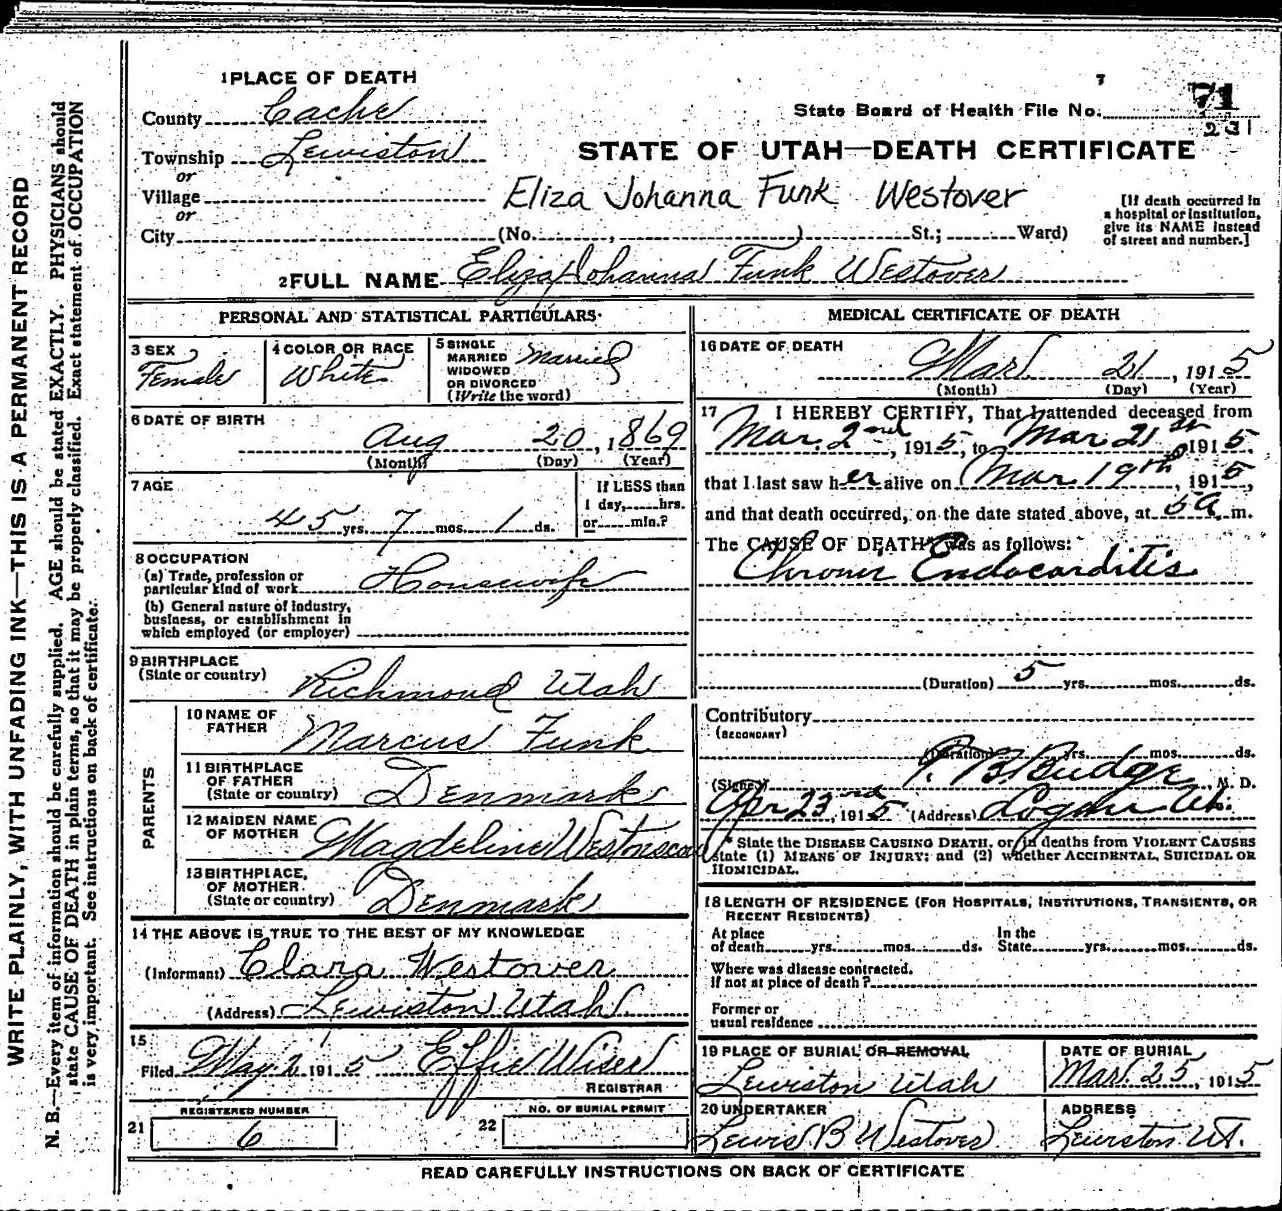 WRITE PLAINLY, WITH UNFADING INK—THIS IS A PERMANENT RECORD
N. B.—Every item of information should be carefully supplied. AGE should be stated EXACTLY. PHYSICIANS should
state CAUSE OF DEATH in plain terms, so that it may be properly classified. Exact statement of OCCUPATION
is very important. See instructions on back of certificate.
1 PLACE OF DEATH
County Cache
State Board of Health File No. 71
231
Township Lewiston
STATE OF UTAH—DEATH CERTIFICATE
or
Village
Eliza Johanna Funk Westover
or
City (No. , ) St.; Ward)
[If death occurred in
a hospital or institution,
give its NAME instead
of street and number.]
2 FULL NAME Eliza Johanna Funk Westover
PERSONAL AND STATISTICAL PARTICULARS
3 SEX
Female
4 COLOR OR RACE
White
5 SINGLE
MARRIED
WIDOWED
OR DIVORCED
(Write the word)
Married
6 DATE OF BIRTH
Aug 20, 1869
(Month) (Day) (Year)
7 AGE
45 yrs. 7 mos. 1 ds.
If LESS than
1 day, hrs.
or min.?
8 OCCUPATION
(a) Trade, profession or
particular kind of work Housewife
(b) General nature of industry,
business, or establishment in
which employed (or employer)
9 BIRTHPLACE
(State or country)
Richmond Utah
PARENTS
10 NAME OF
FATHER
Marcus Funk
11 BIRTHPLACE
OF FATHER
(State or country)
Denmark
12 MAIDEN NAME
OF MOTHER
Magdeline
13 BIRTHPLACE
OF MOTHER
(State or country)
Denmark
14 THE ABOVE IS TRUE TO THE BEST OF MY KNOWLEDGE
(Informant) Clara Westover
(Address) Lewiston Utah
15
Filed May 2 1915 Effie Wiser
REGISTRAR
REGISTERED NUMBER
21 6
NO. OF BURIAL PERMIT
22
MEDICAL CERTIFICATE OF DEATH
16 DATE OF DEATH
Mar 21, 1915
(Month) (Day) (Year)
17 I HEREBY CERTIFY, That I attended deceased from
Mar. 2nd, 1915, to Mar 21st 1915,
that I last saw her alive on Mar 19th, 1915,
and that death occurred, on the date stated above, at 5 a. m.
The CAUSE OF DEATH* was as follows:
Chronic Endocarditis
(Duration) 5 yrs. mos. ds.
Contributory
(SECONDARY)
(Duration) yrs. mos. ds.
(Signed) Budge M. D.
Apr 23rd, 1915 (Address) Logan Ut.
* State the DISEASE CAUSING DEATH, or, in deaths from VIOLENT CAUSES
state (1) MEANS OF INJURY; and (2) whether ACCIDENTAL, SUICIDAL OR
HOMICIDAL.
18 LENGTH OF RESIDENCE (FOR HOSPITALS, INSTITUTIONS, TRANSIENTS, OR
RECENT RESIDENTS)
At place
of death yrs. mos. ds.
In the
State yrs. mos. ds.
Where was disease contracted,
If not at place of death?
Former or
usual residence
19 PLACE OF BURIAL OR REMOVAL
Lewiston Utah
DATE OF BURIAL
Mar. 25, 1915
20 UNDERTAKER
Lewis B Westover
ADDRESS
Lewiston UT.
READ CAREFULLY INSTRUCTIONS ON BACK OF CERTIFICATE